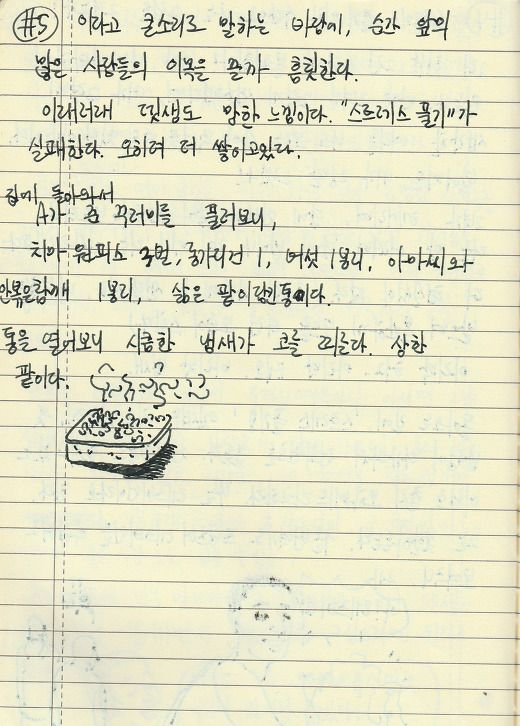 #5 이라고 큰소리로 말하는 바람에, 순간 앞의
많은 사람들의 이목을 끌까 흠칫한다.
이래저래 뎃생도 망한 느낌이다. "스트레스 풀기"가
실패한다. 오히려 더 쌓이고있다.
집에 돌아와서
A가 준 꾸러미를 풀러보니,
치마 원피스 3벌, 롱가디건 1, 버섯 1봉리, 아마씨와
안볶은참깨 1봉리, 삶은 팥이 담긴 통이다.
통을 열어보니 시큼한 냄새가 코를 찌른다. 상한
팥이다.